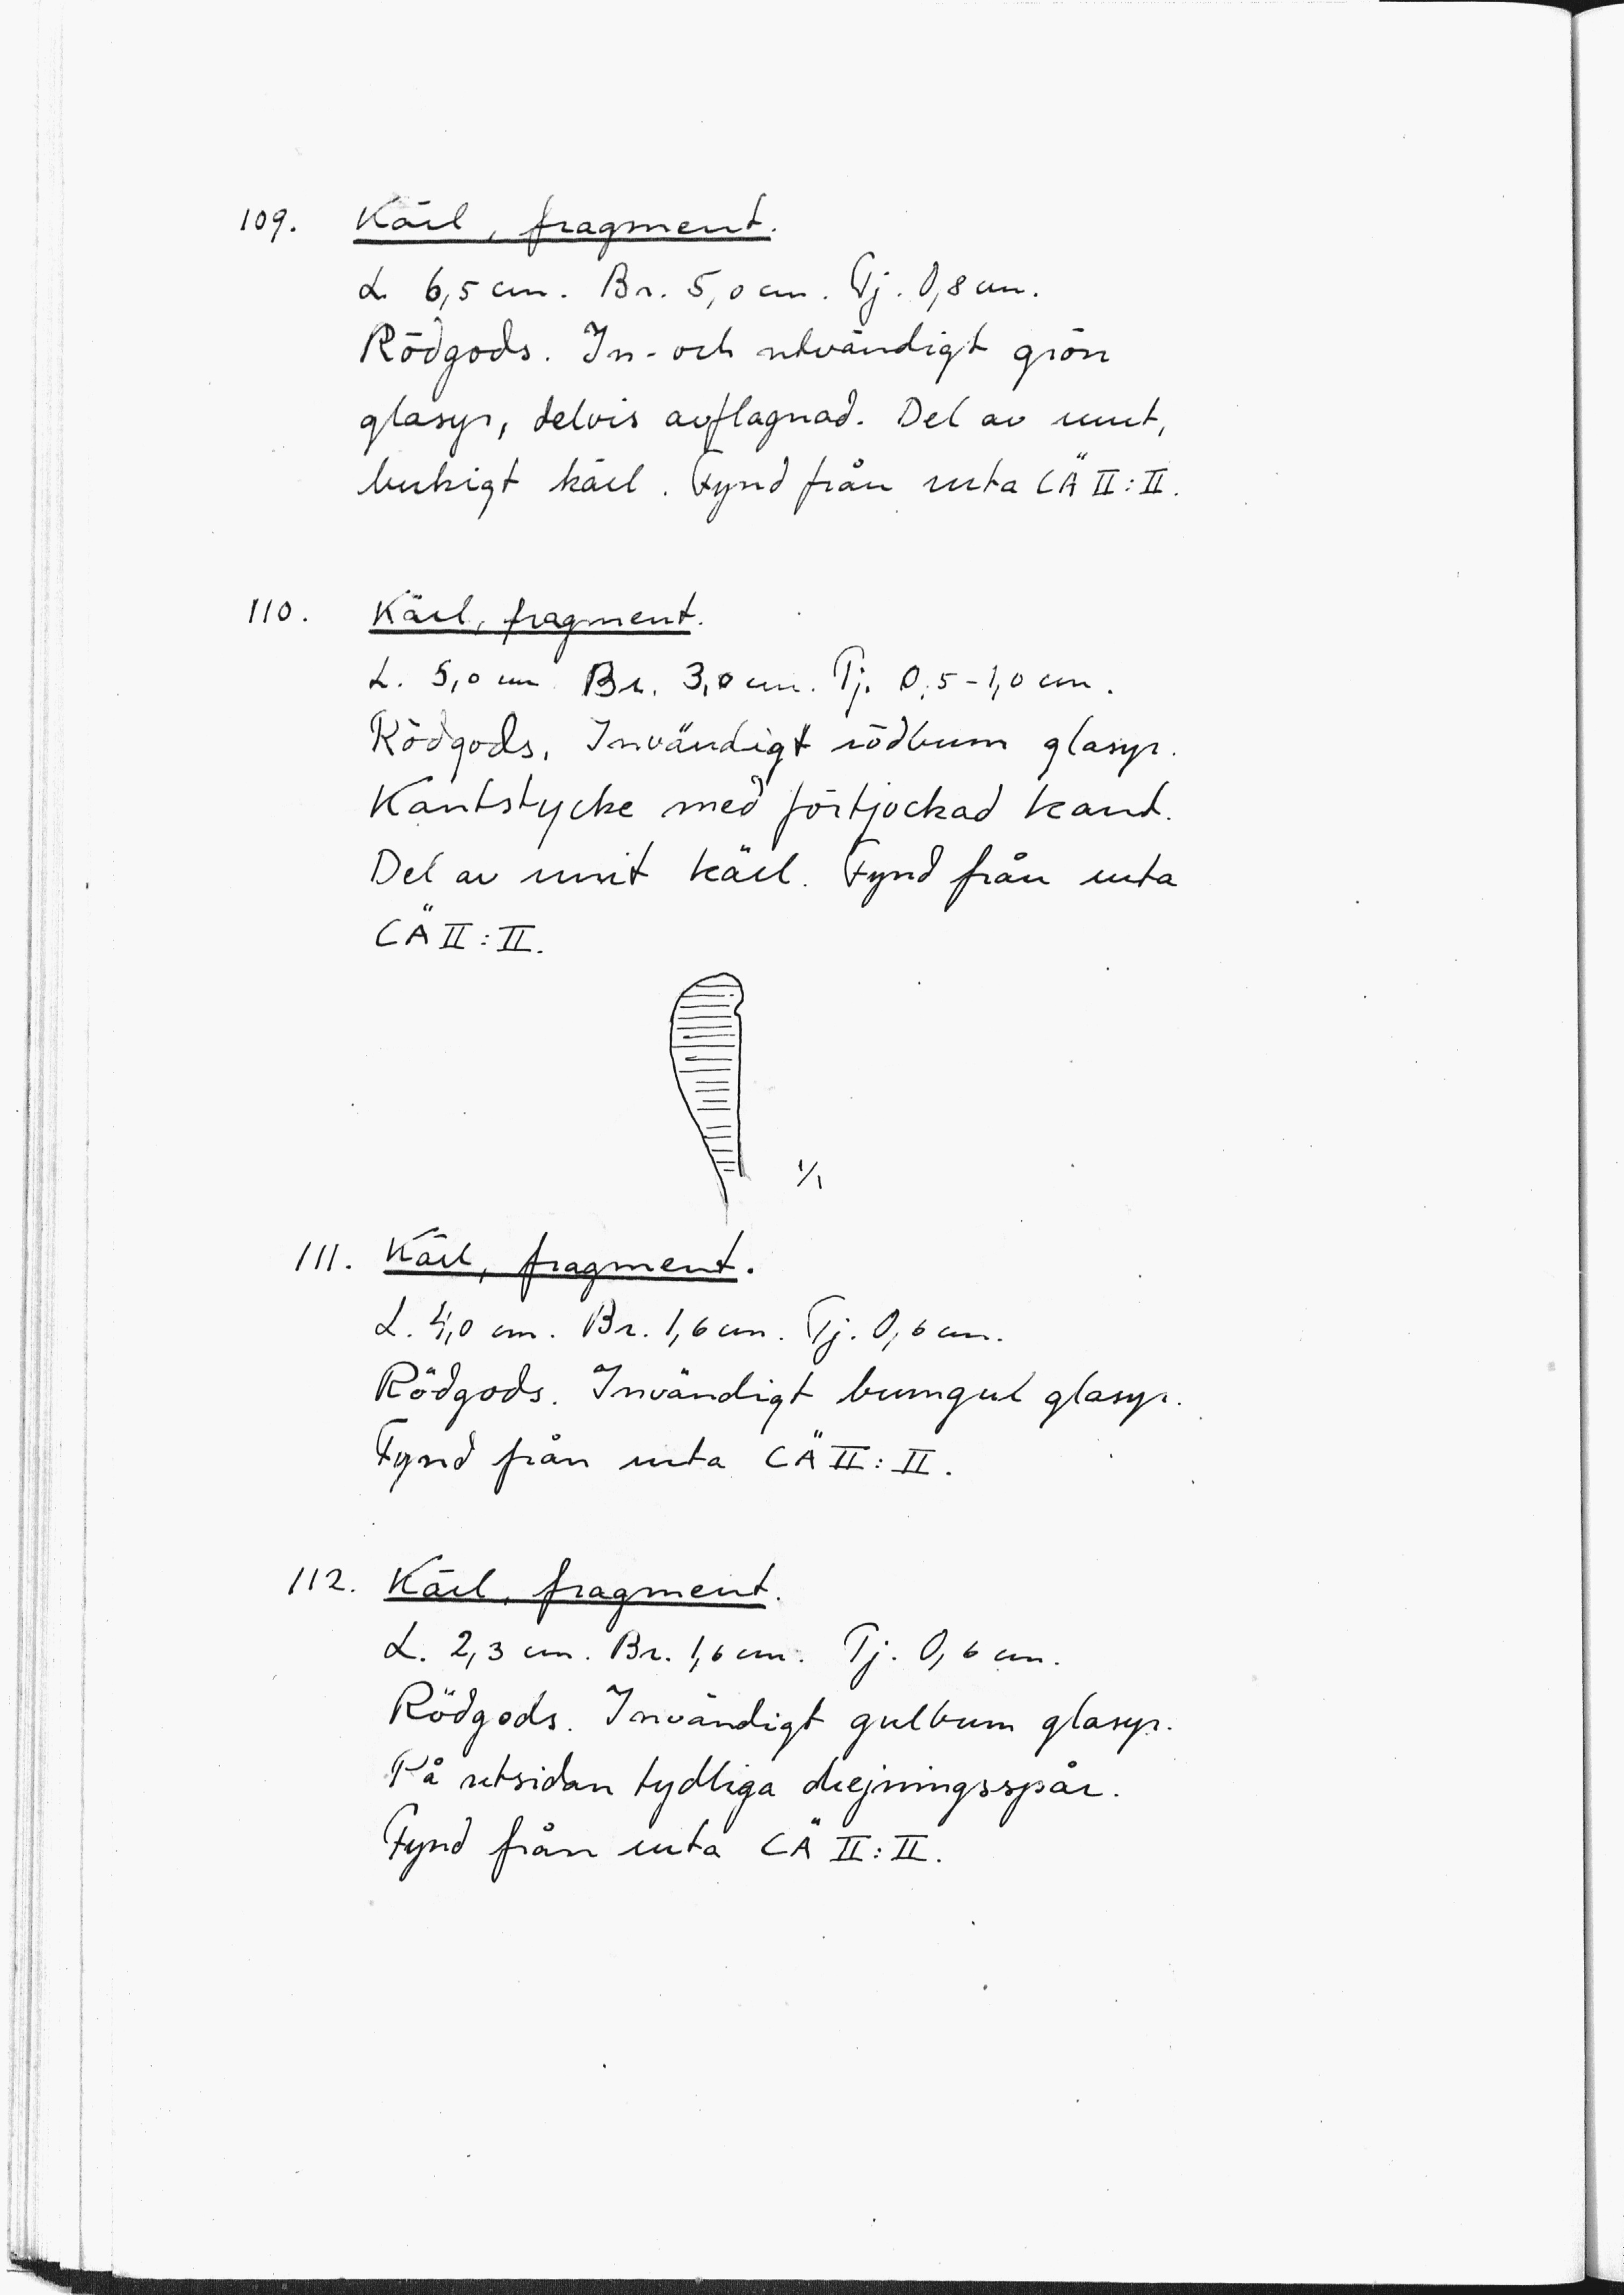 109. Kärl, fragment.
L. 6,5 cm. Br. 5,0 cm. Tj. 0,8 cm.
Rödgods. In- och utvändigt grön
glasyr, delvis avflagnad. Del av runt,
bukigt kärl. Fynd från ruta CÄ II:II.
110. Kärl, fragment.
L. 5,0 cm Br. 3,0 cm. Tj. 0,5-1,0 cm.
Rödgods, Invändigt rödbrun glasyr.
Kantstycke med förtjockad kant.
Del av runt kärl. Fynd från ruta
CÄ II:II.
1/1
111. Kärl, fragment.
L. 4,0 cm. Br. 1,6 cm. Tj. 0,6 cm.
Rödgods. Invändigt brungul glasyr.
Fynd från ruta CÄ II:II.
112. Kärl, fragment.
L. 2,3 cm. Br. 1,6 cm. Tj. 0,6 cm.
Rödgods. Invändigt gulbrun glasyr.
På utsidan tydliga drejningsspår.
Fynd från ruta CÄ II:II.